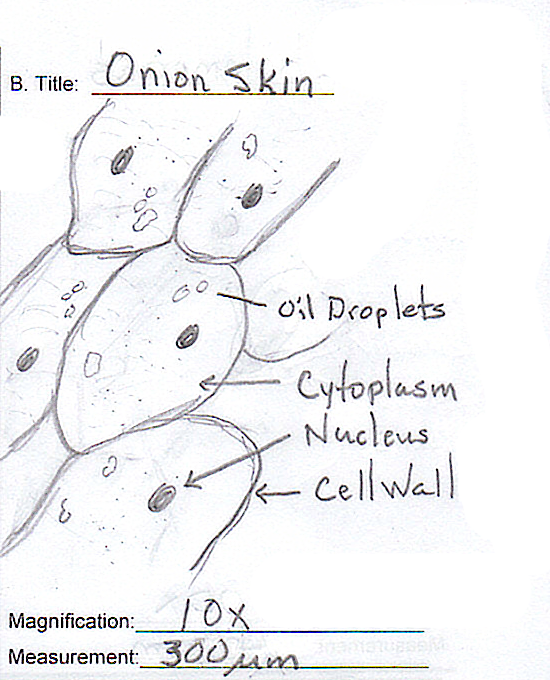 B. Title: Onion Skin
Oil Droplets
Cytoplasm
Nucleus
Cell Wall
Magnification: 10x
Measurement: 300 µm